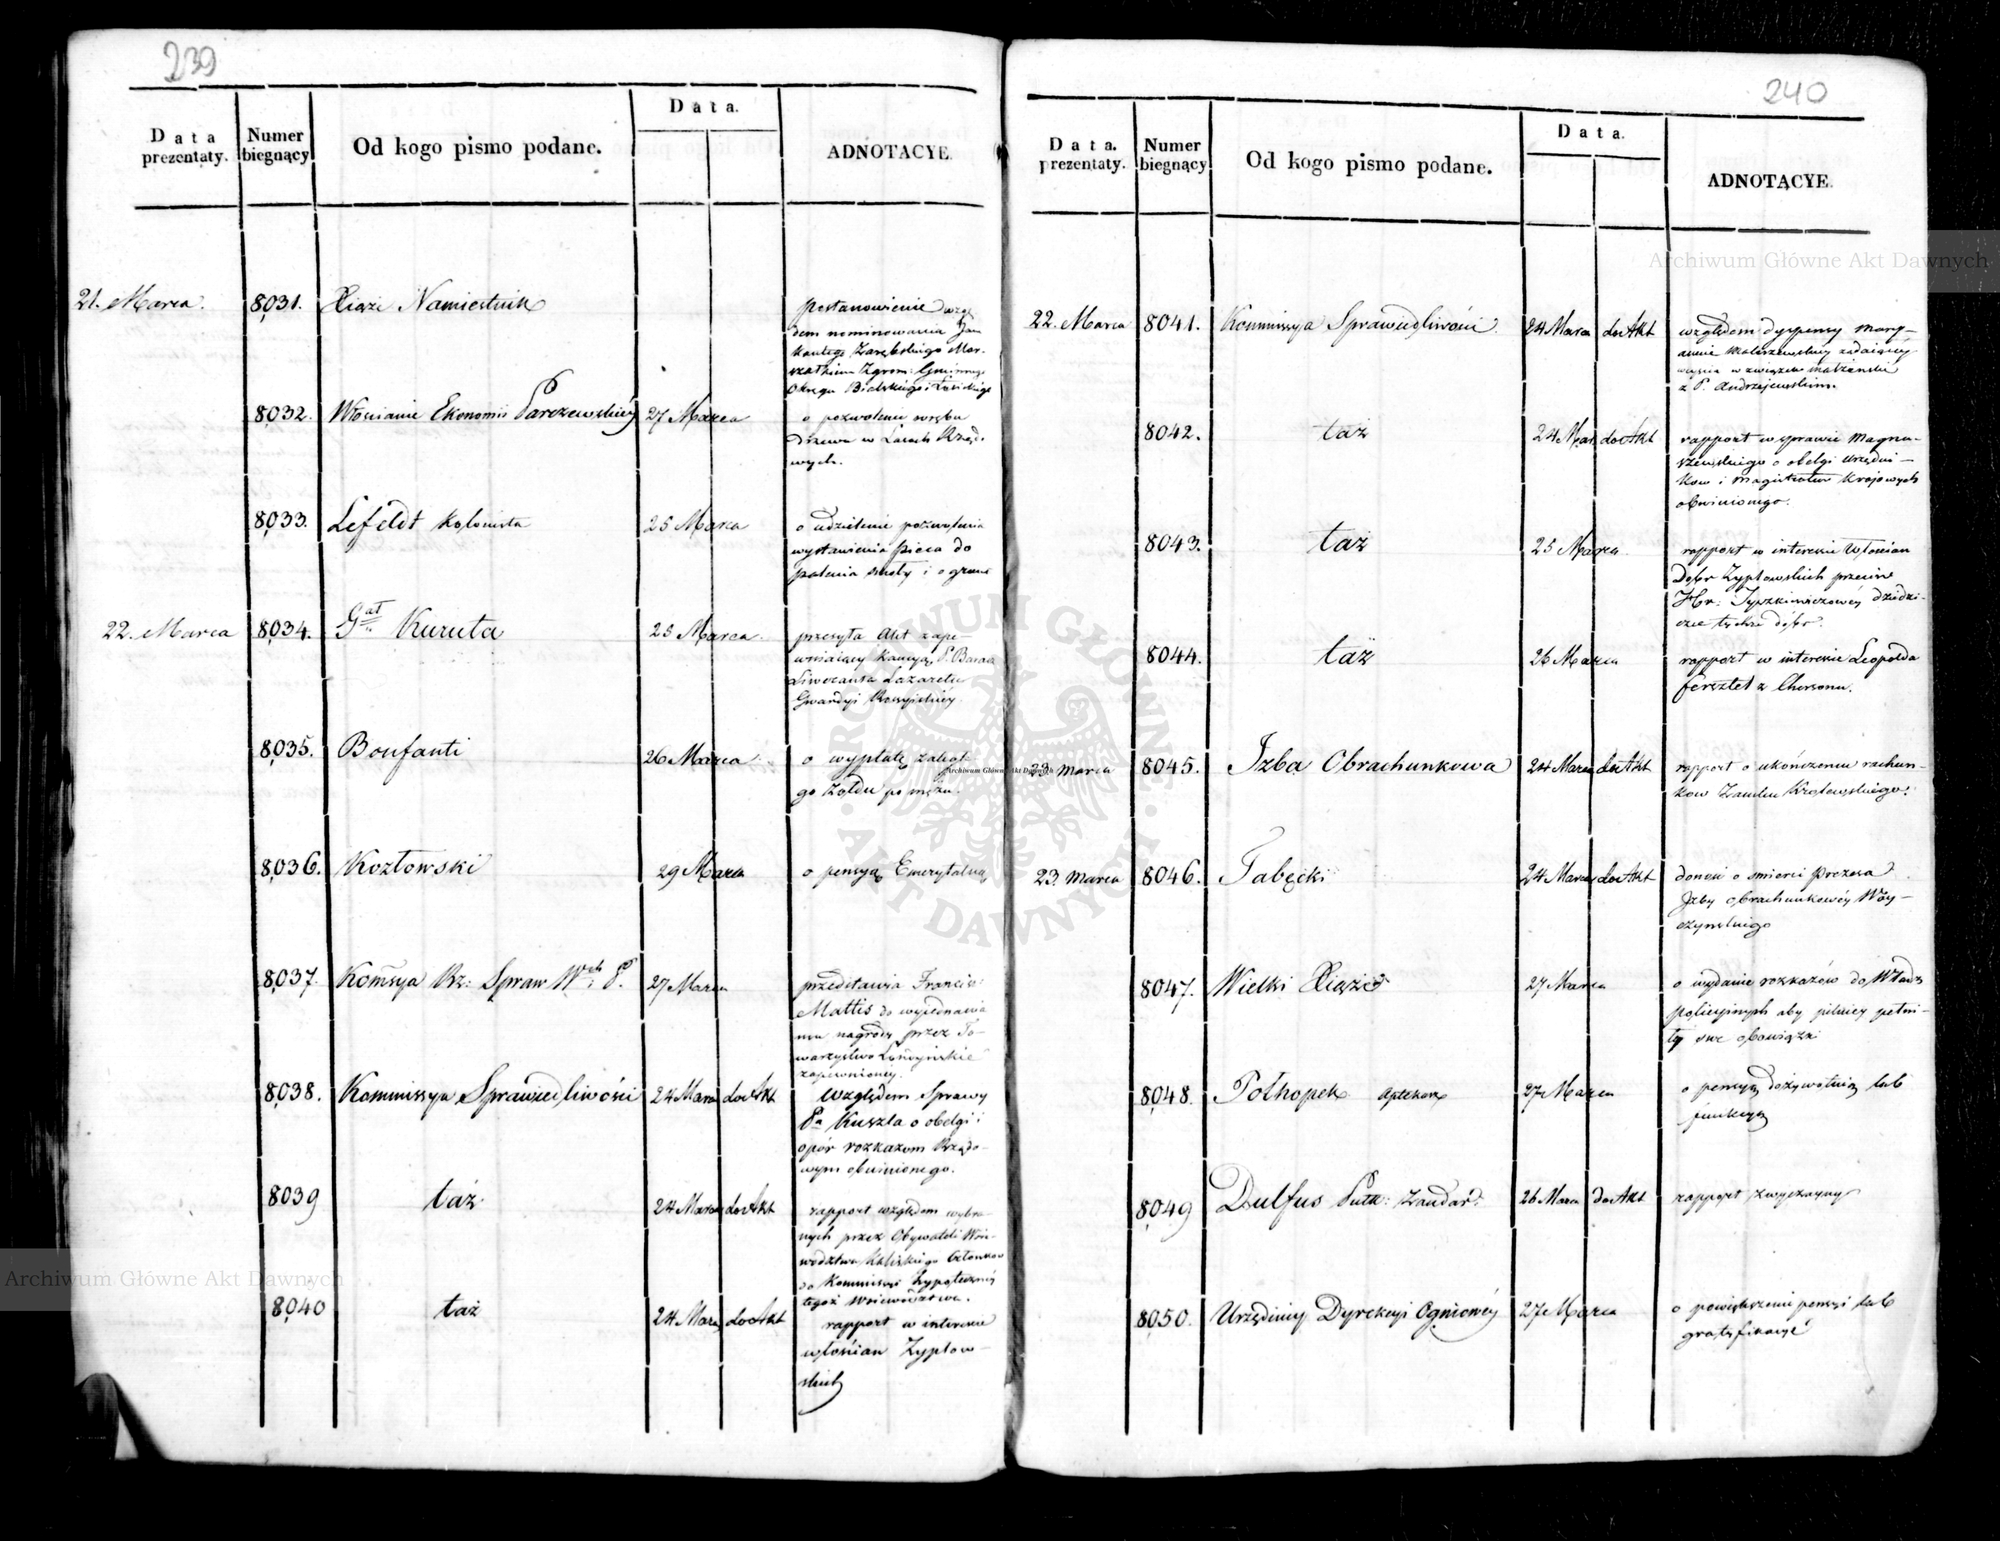 239
Data prezentaty.
Numer biegnący
Od kogo pismo podane.
Data.
ADNOTACYE.
21. Marca.
8031.
Xiąże Namiestnik
postanowienie wzglę
dem nominowania Jana
Kantego Zarębskiego Mar-
szałkiem Zgrom: Gminnego
Okręgu Bialskiego i
8032.
Włościanie Ekonomii Parczewskiéy
27 Marca
o pozwolenie wrębu
drzewa w Lasach Rządo
wych.
8033.
Lefeldt Kolonista
25 Marca
o udzielenie pozwolenia
wystawienia pieca do
palenia smoły i o grunt
22. Marca
8034.
Gał Kuruta
25 Marca.
przesyła Akt zape-
wniaiący kaucyą P. Barana
Liweranta Lazaretu
Gwardyi Rossyiskiéy
8035.
Bonfanti
26 Marca
o wypłatę zaległe
go Żołdu po mężu.
8036.
Kozłowski
29 Marca
o pensyą Emerytalną
8037.
Kommsya Rz: Spraw Wch: P.
27 Marca
przedstawia Francisz:
Mattis do wyiednania
mu nagrody przez To-
warzystwo Londyńskie
zapewnionéy.
8038.
Kommissya Sprawiedliwości
24 Marca do Akt
względem Sprawy
Pa Kuszla o obelgi i
opór rozkazom Rządo-
wym obwinionego.
8039
taż
24 Marca do Akt
rapport względem wybra
nych przez Obywateli Woie-
wództwa Kaliskiego Członków
do Kommissyi hypoteczney
tegoż Woiewództwa.
8040
taż
24 Marca do Akt
rapport w interesie
włościan Zypłow-
skich
240
Data. prezentaty.
Numer biegnący
Od kogo pismo podane.
Data.
ADNOTACYE.
22. Marca
8041.
Kommissya Sprawiedliwości
24 Marca do Akt
względem dyspensy Mary-
annie Małaszewskiey żądaiącéy
wyiścia w związek małżeński
z P. Andrzejewskim.
8042.
taż
24 Mar do Akt
rapport w sprawie Magnu-
szewskiego o obelgi Urzędni-
ków i Magistratur Krajowych
obwinionego.
8043.
taż
25 Marca
rapport w interesie Włościan
Dóbr Zypłowskich przeciw
Hr: Tyszkiewiczowéy dziedzi-
czce tychże dóbr.
8044.
taż
26 Marca
rapport w interesie Leopolda
Fersztet z Chersonu.
23 Marca
8045.
Izba Obrachunkowa
24 Marca do Akt
rapport o ukończeniu rachun-
ków Zamku Królewskiego.
23. Marca
8046.
Tabęcki
24 Marca do Akt
donosi o śmierci Prezesa
Izby Obrachunkowéy Woy-
czyńskiego
8047.
Wielki Xiąże
27 Marca
o wydanie rozkazów do Władz
policyinych aby pilniey pełni-
ły swe obowiązki
8048.
Półhopek Aptekarz
27 Marca
o pensyą dożywotnią lub
funkcyą
8049
Dulfus Pułk: Żandar:
26 Marca do Akt
rapport zwyczayny
8050.
Urzędnicy Dyrekcyi Ogniowéy
27 Marca
o powiększenie pensyi lub
gratyfikacyę
Archiwum Główne Akt Dawnych
Archiwum Główne Akt Dawnych
Archiwum Główne Akt Dawnych
ARCHIWUM GŁÓWNE
AKT DAWNYCH